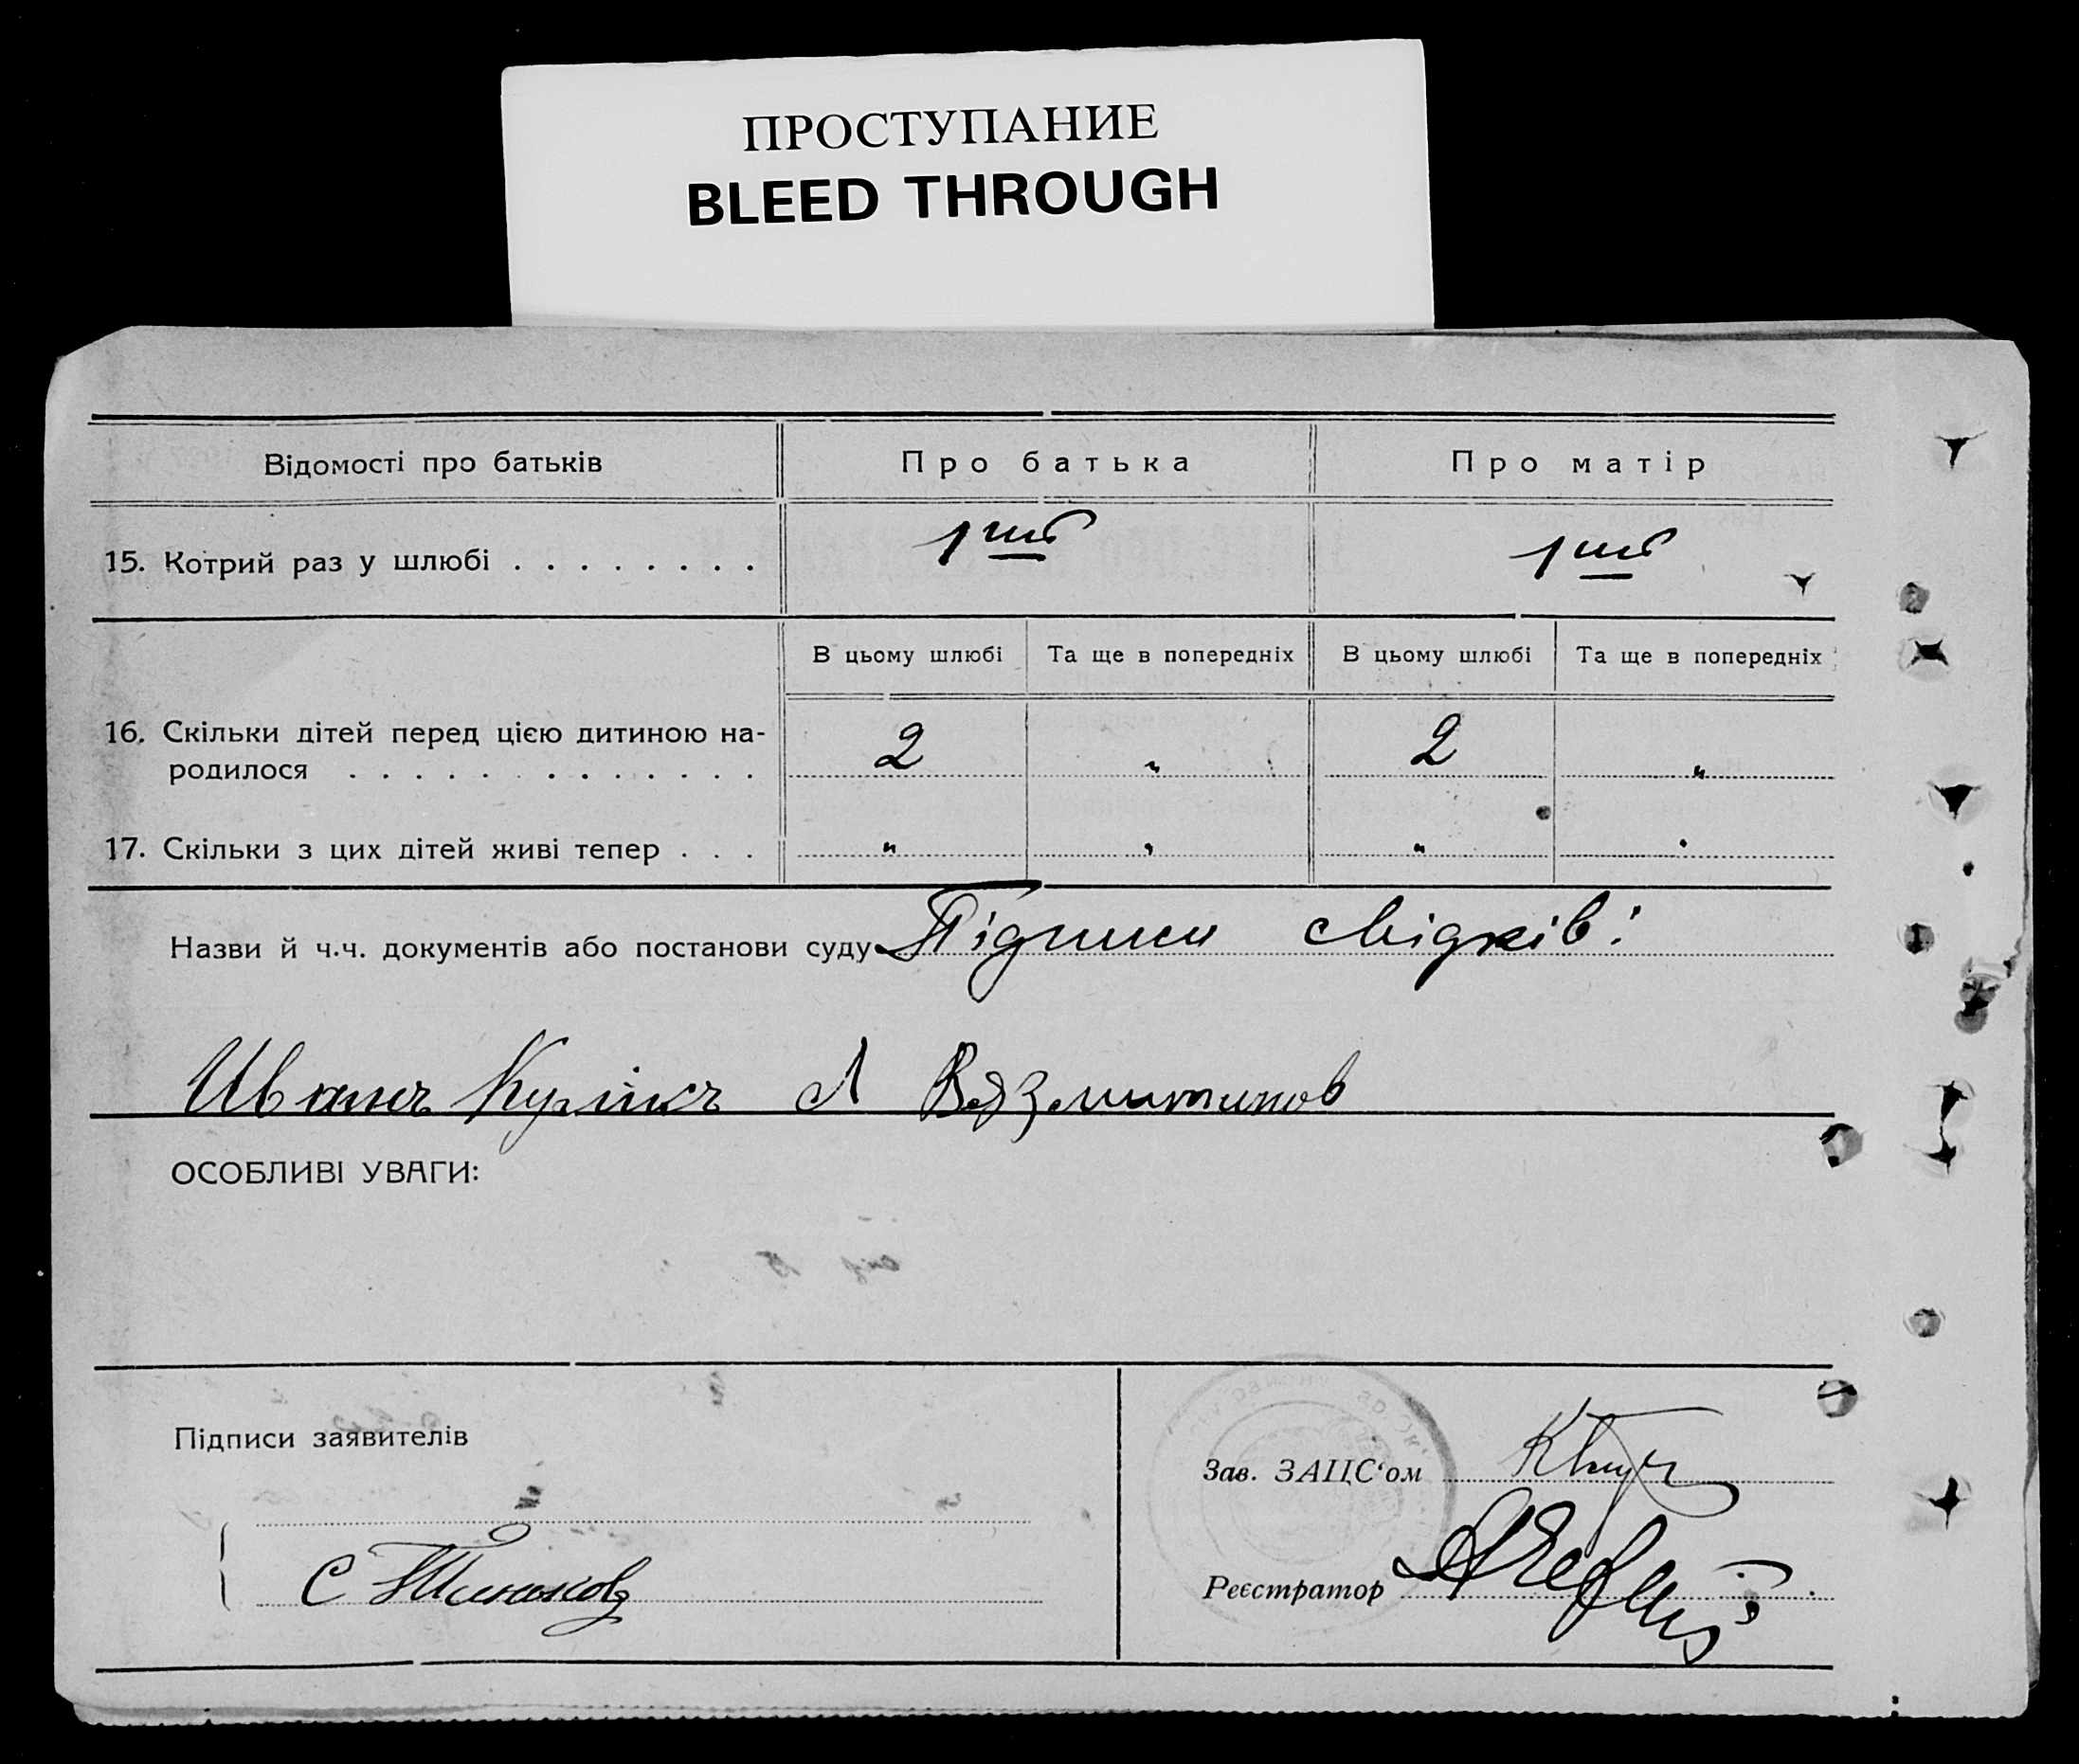 ПРОСТУПАНИЕ
BLEED THROUGH
Відомості про батьків Про батька Про матір
15. Котрий раз у шлюбі . . . . . . . . 1ший 1ший
В цьому шлюбі Та ще в попередніх В цьому шлюбі Та ще в попередніх
16. Скільки дітей перед цією дитиною на-
родилося . . . . . . . . . . . . . 2 " 2 "
17. Скільки з цих дітей живі тепер . . . " " " "
Назви й ч.ч. документів або постанови суду Підписи свідків:
Иванъ Куликъ А Вязмитинов
ОСОБЛИВІ УВАГИ:
Підписи заявителів
Зав. ЗАЦС'ом
С
Реєстратор